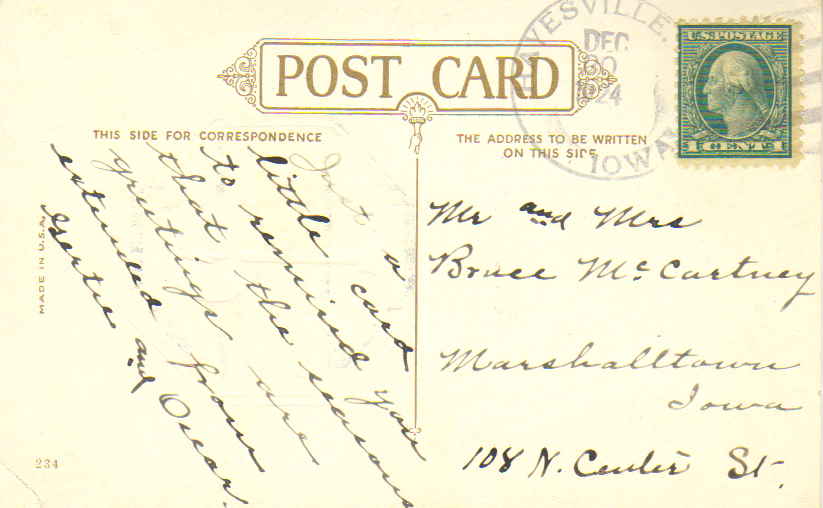 POST CARD
THIS SIDE FOR CORRESPONDENCE
THE ADDRESS TO BE WRITTEN
ON THIS SIDE
HAYESVILLE.
DEC
1924
IOWA
U.S. POSTAGE
1 CENT 1
Just a
little card
to remind you
that the seasons
greetings are
extended from
and Oscar.
Mr and Mrs
Bruce McCartney
Marshalltown
Iowa
108 N. Center St.
MADE IN U.S.A.
234